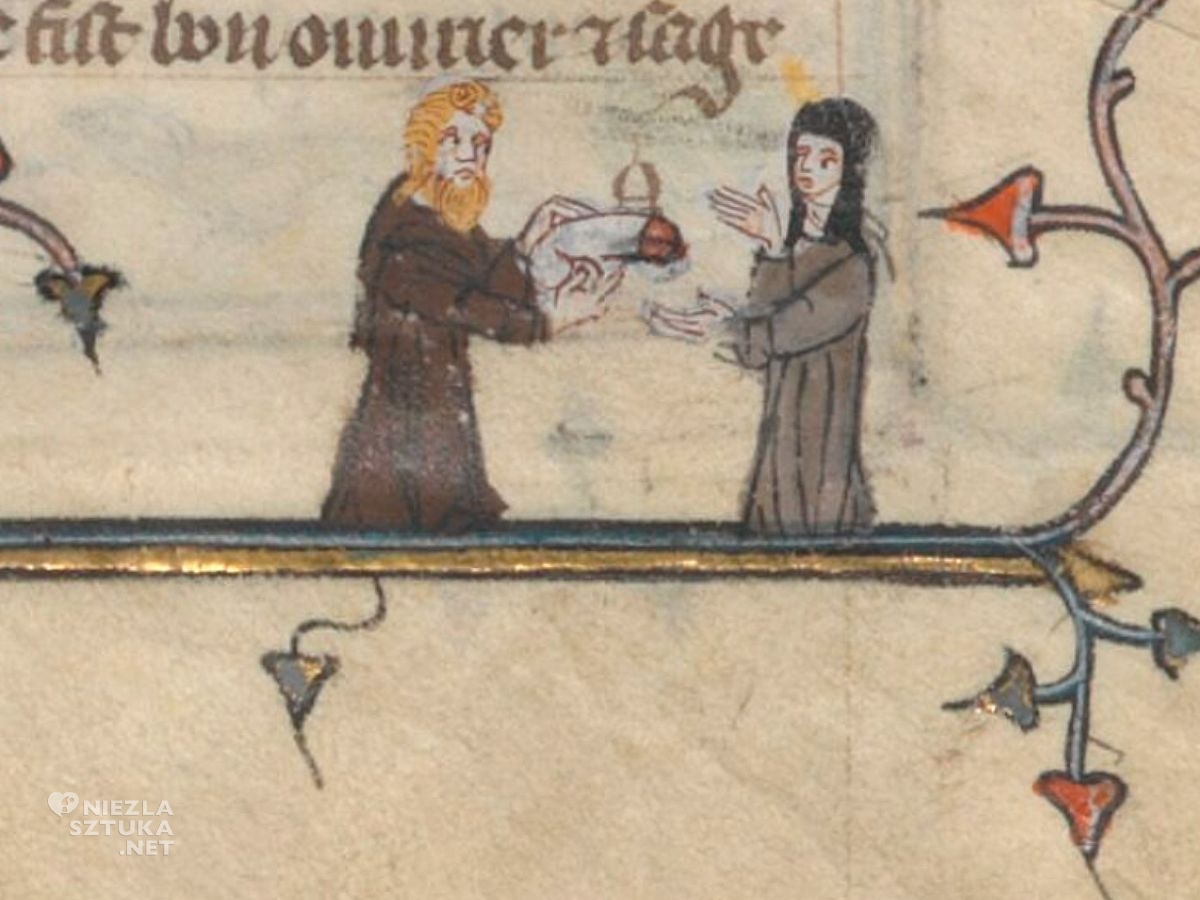 fist bon ouurier ⁊ sage
NIEZLA
SZTUKA
.NET